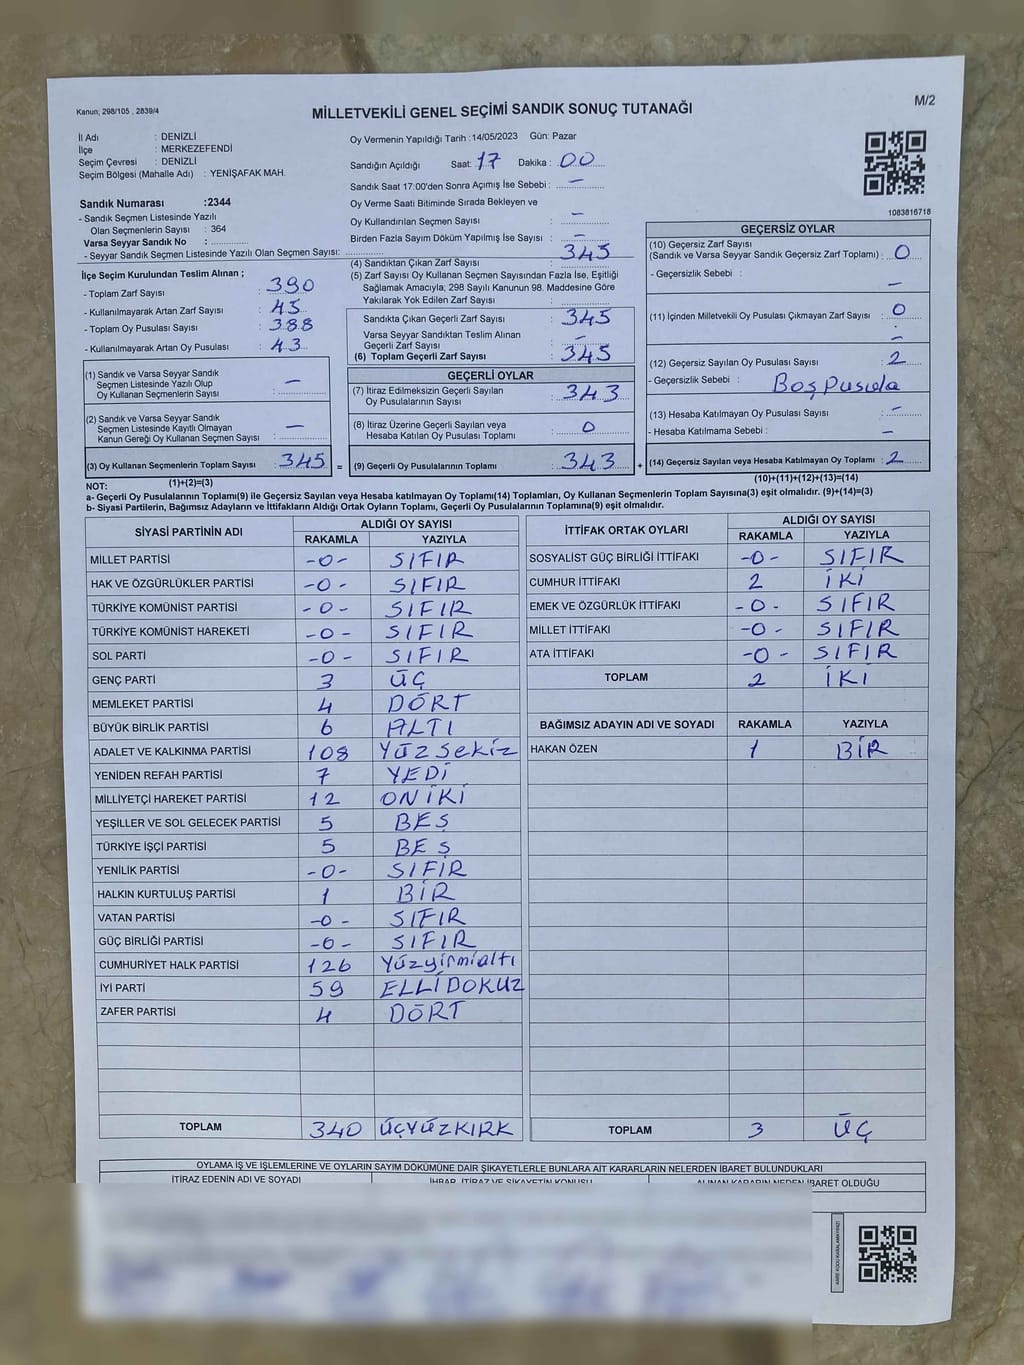 Kanun; 298/105 , 2839/4
MİLLETVEKİLİ GENEL SEÇİMİ SANDIK SONUÇ TUTANAĞI
M/2
İl Adı : DENİZLİ
İlçe : MERKEZEFENDİ
Seçim Çevresi : DENİZLİ
Seçim Bölgesi (Mahalle Adı) : YENİŞAFAK MAH.
Sandık Numarası :2344
- Sandık Seçmen Listesinde Yazılı
Olan Seçmenlerin Sayısı : 364
Varsa Seyyar Sandık No :
- Seyyar Sandık Seçmen Listesinde Yazılı Olan Seçmen Sayısı:
Oy Vermenin Yapıldığı Tarih :14/05/2023 Gün: Pazar
Sandığın Açıldığı Saat: 17 Dakika : 00
Sandık Saat 17:00'den Sonra Açımış İse Sebebi : –
Oy Verme Saati Bitiminde Sırada Bekleyen ve
Oy Kullandırılan Seçmen Sayısı : –
Birden Fazla Sayım Döküm Yapılmış İse Sayısı : –
1083816718
İlçe Seçim Kurulundan Teslim Alınan ;
- Toplam Zarf Sayısı : 390
- Kullanılmayarak Artan Zarf Sayısı : 45
- Toplam Oy Pusulası Sayısı : 388
- Kullanılmayarak Artan Oy Pusulası : 43
(1) Sandık ve Varsa Seyyar Sandık
Seçmen Listesinde Yazılı Olup
Oy Kullanan Seçmenlerin Sayısı : –
(2) Sandık ve Varsa Seyyar Sandık
Seçmen Listesinde Kayıtlı Olmayan
Kanun Gereği Oy Kullanan Seçmen Sayısı : –
(3) Oy Kullanan Seçmenlerin Toplam Sayısı : 345 =
(4) Sandıktan Çıkan Zarf Sayısı : 345
(5) Zarf Sayısı Oy Kullanan Seçmen Sayısından Fazla İse, Eşitliği
Sağlamak Amacıyla; 298 Sayılı Kanunun 98. Maddesine Göre
Yakılarak Yok Edilen Zarf Sayısı :
Sandıkta Çıkan Geçerli Zarf Sayısı : 345
Varsa Seyyar Sandıktan Teslim Alınan
Geçerli Zarf Sayısı : –
(6) Toplam Geçerli Zarf Sayısı : 345
GEÇERLİ OYLAR
(7) İtiraz Edilmeksizin Geçerli Sayılan
Oy Pusulalarının Sayısı : 343
(8) İtiraz Üzerine Geçerli Sayılan veya
Hesaba Katılan Oy Pusulası Toplamı : 0
(9) Geçerli Oy Pusulalarının Toplamı : 343 +
GEÇERSİZ OYLAR
(10) Geçersiz Zarf Sayısı
(Sandık ve Varsa Seyyar Sandık Geçersiz Zarf Toplamı) : 0
- Geçersizlik Sebebi : –
(11) İçinden Milletvekili Oy Pusulası Çıkmayan Zarf Sayısı : 0
–
(12) Geçersiz Sayılan Oy Pusulası Sayısı : 2
- Geçersizlik Sebebi : Boş Pusula
(13) Hesaba Katılmayan Oy Pusulası Sayısı : –
- Hesaba Katılmama Sebebi : –
(14) Geçersiz Sayılan veya Hesaba Katılmayan Oy Toplamı : 2
NOT: (1)+(2)=(3)
(10)+(11)+(12)+(13)=(14)
a- Geçerli Oy Pusulalarının Toplamı(9) ile Geçersiz Sayılan veya Hesaba katılmayan Oy Toplamı(14) Toplamları, Oy Kullanan Seçmenlerin Toplam Sayısına(3) eşit olmalıdır. (9)+(14)=(3)
b- Siyasi Partilerin, Bağımsız Adayların ve İttifakların Aldığı Ortak Oyların Toplamı, Geçerli Oy Pusulalarının Toplamına(9) eşit olmalıdır.
SİYASİ PARTİNİN ADI ALDIĞI OY SAYISI
RAKAMLA YAZIYLA
MİLLET PARTİSİ -0- SIFIR
HAK VE ÖZGÜRLÜKLER PARTİSİ -0- SIFIR
TÜRKİYE KOMÜNİST PARTİSİ -0- SIFIR
TÜRKİYE KOMÜNİST HAREKETİ -0- SIFIR
SOL PARTİ -0- SIFIR
GENÇ PARTİ 3 ÜÇ
MEMLEKET PARTİSİ 4 DÖRT
BÜYÜK BİRLİK PARTİSİ 6 ALTI
ADALET VE KALKINMA PARTİSİ 108 Yüzsekiz
YENİDEN REFAH PARTİSİ 7 YEDİ
MİLLİYETÇİ HAREKET PARTİSİ 12 ONİKİ
YEŞİLLER VE SOL GELECEK PARTİSİ 5 BEŞ
TÜRKİYE İŞÇİ PARTİSİ 5 BEŞ
YENİLİK PARTİSİ -0- SIFIR
HALKIN KURTULUŞ PARTİSİ 1 BİR
VATAN PARTİSİ -0- SIFIR
GÜÇ BİRLİĞİ PARTİSİ -0- SIFIR
CUMHURİYET HALK PARTİSİ 126 Yüzyirmialtı
İYİ PARTİ 59 ELLİDOKUZ
ZAFER PARTİSİ 4 DÖRT
TOPLAM 340 ÜÇYÜZKIRK
İTTİFAK ORTAK OYLARI ALDIĞI OY SAYISI
RAKAMLA YAZIYLA
SOSYALİST GÜÇ BİRLİĞİ İTTİFAKI -0- SIFIR
CUMHUR İTTİFAKI 2 İKİ
EMEK VE ÖZGÜRLÜK İTTİFAKI -0- SIFIR
MİLLET İTTİFAKI -0- SIFIR
ATA İTTİFAKI -0- SIFIR
TOPLAM 2 İKİ
BAĞIMSIZ ADAYIN ADI VE SOYADI RAKAMLA YAZIYLA
HAKAN ÖZEN 1 BİR
TOPLAM 3 ÜÇ
OYLAMA İŞ VE İŞLEMLERİNE VE OYLARIN SAYIM DÖKÜMÜNE DAİR ŞİKAYETLERLE BUNLARA AİT KARARLARIN NELERDEN İBARET BULUNDUKLARI
İTİRAZ EDENİN ADI VE SOYADI İHBAR, İTİRAZ VE ŞİKAYETİN KONUSU ALINAN KARARIN NEDEN İBARET OLDUĞU
KARE KODU KARALAMAYINIZ!